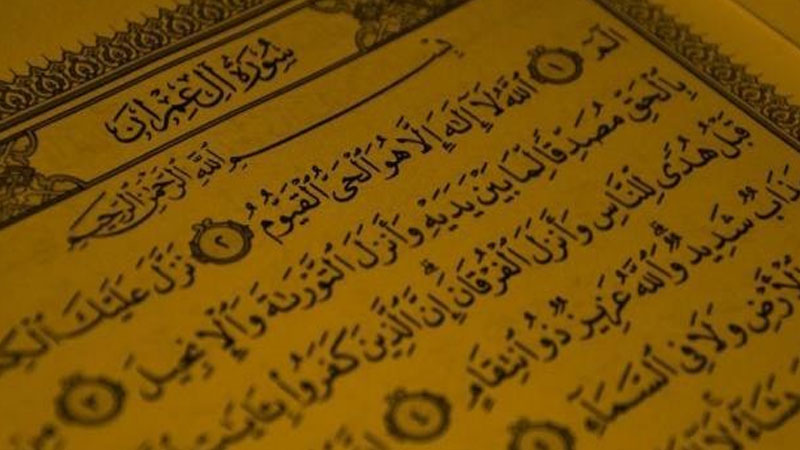 سُورَةُ آلِ عِمْرَانَ
بِسْمِ ٱللَّهِ ٱلرَّحْمَٰنِ ٱلرَّحِيمِ
الٓمٓ ١ ٱللَّهُ لَآ إِلَٰهَ إِلَّا هُوَ ٱلْحَىُّ ٱلْقَيُّومُ ٢ نَزَّلَ عَلَيْكَ
بِٱلْحَقِّ مُصَدِّقًا لِّمَا بَيْنَ يَدَيْهِ وَأَنزَلَ ٱلتَّوْرَىٰةَ وَٱلْإِنجِيلَ ٣
قَبْلُ هُدًى لِّلنَّاسِ وَأَنزَلَ ٱلْفُرْقَانَ ۗ إِنَّ ٱلَّذِينَ كَفَرُوا۟ بِـَٔايَٰتِ
شَدِيدٌ ۗ وَٱللَّهُ عَزِيزٌ ذُو ٱنتِقَامٍ ٤
ٱلْأَرْضِ وَلَا فِى ٱلسَّمَآءِ ٥